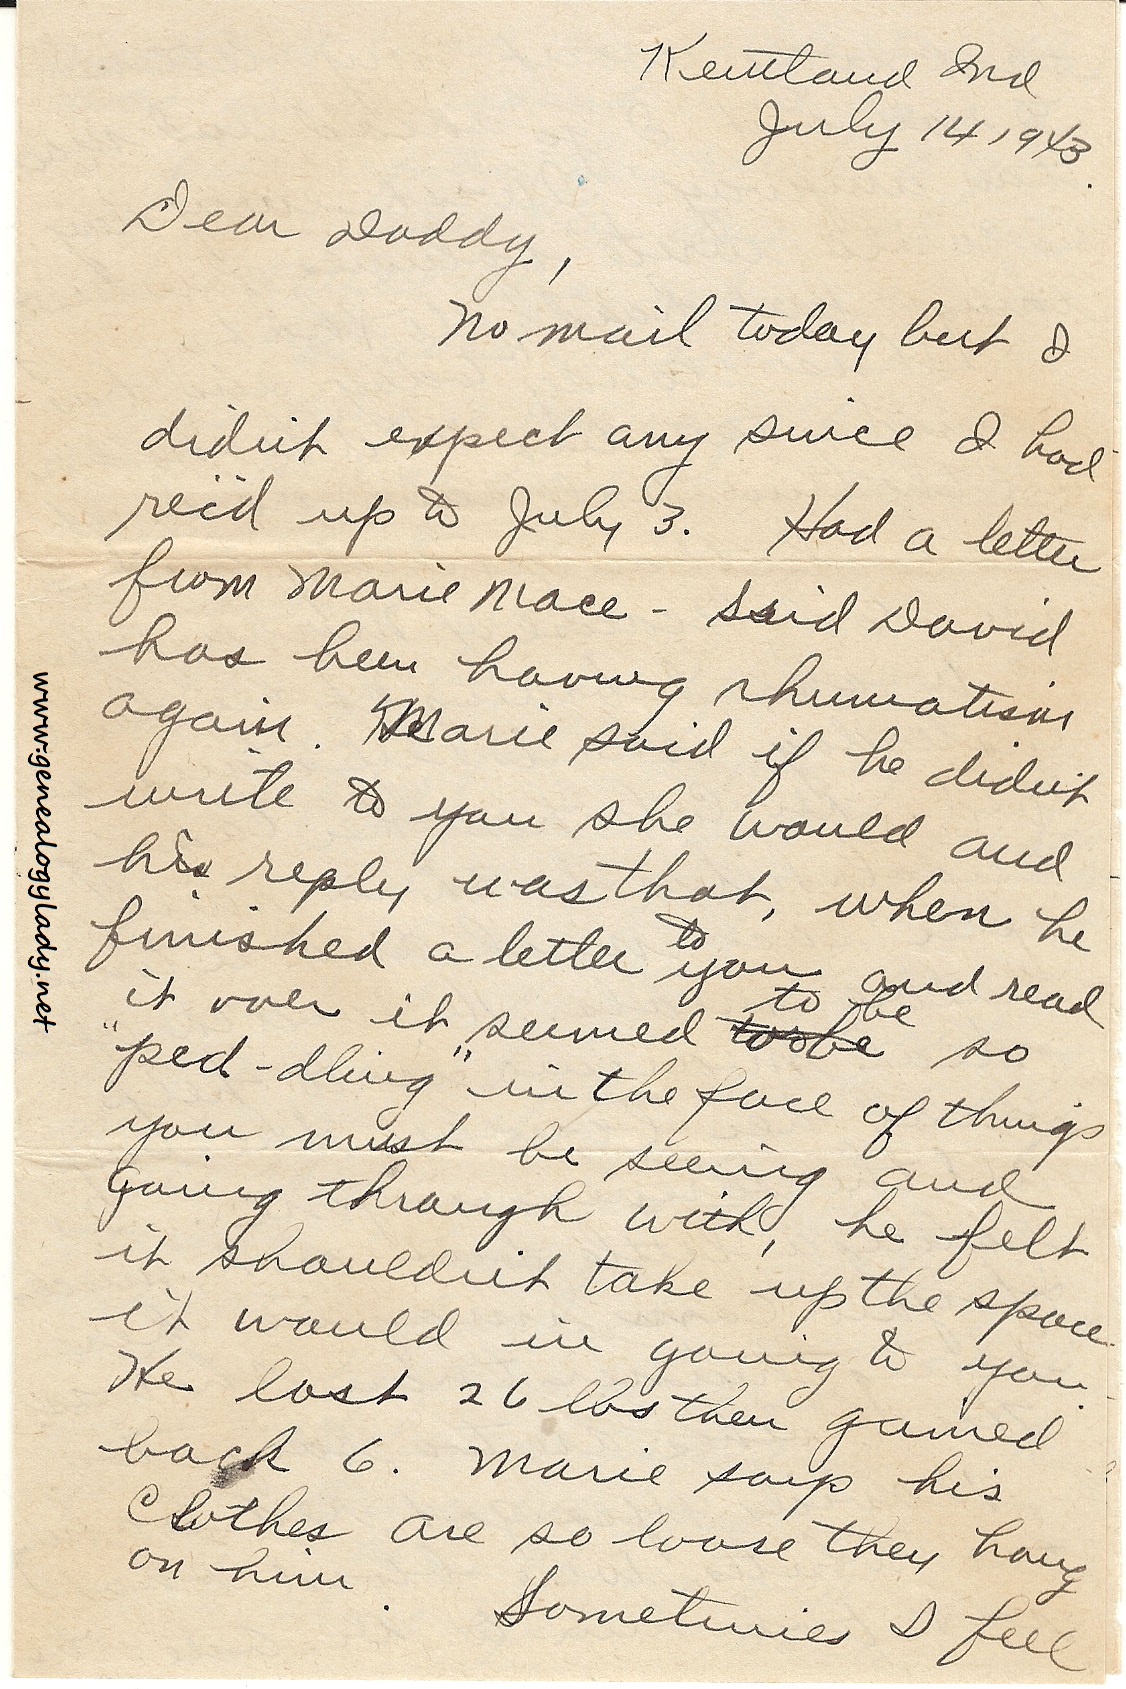 Kentland Ind
July 14, 1943.
Dear Daddy,
No mail today but I
didn't expect any since I had
rec'd up to July 3. Had a letter
from Marie Mace - said David
has been having rhumatism
again. Marie said if he didn't
write to you she would and
his reply was that, when he
finished a letter to you and read
it over it seemed to be so
"ped-dling" in the face of things
you must be seeing and
going through with, he felt
it shouldn't take up the space
it would in going to you.
He lost 26 lbs then gained
back 6. Marie says his
clothes are so loose they hang
on him.
Sometimes I feel
www.genealogylady.net